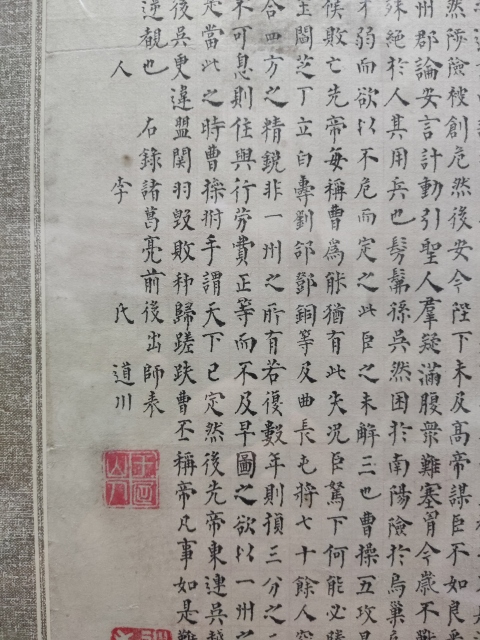 然陟險被創危然後安今陛下未及高帝謀臣不如良
州郡論安言計動引聖人羣疑滿腹衆難塞胷今歲不
殊絕於人其用兵也髣髴孫吳然困於南陽險於烏巢
不弱而欲以不危而定之此臣之未解三也曹操五攻昌
侯敗亡先帝每稱曹為能猶有此失況臣駑下何能必
玉閻芝丁立白壽劉郃鄧銅等及曲長屯將七十餘人突
合四方之精銳非一州之所有若復數年則損三分之二
不可息則住與行勞費正等而不及早圖之欲以一州之
定當此之時曹操拊手謂天下已定然後先帝東連吳越
後吳更違盟關羽毀敗秭歸蹉跌曹丕稱帝凡事如是難
逆覩也 右錄諸葛亮前後出師表
人 李 氏 道川